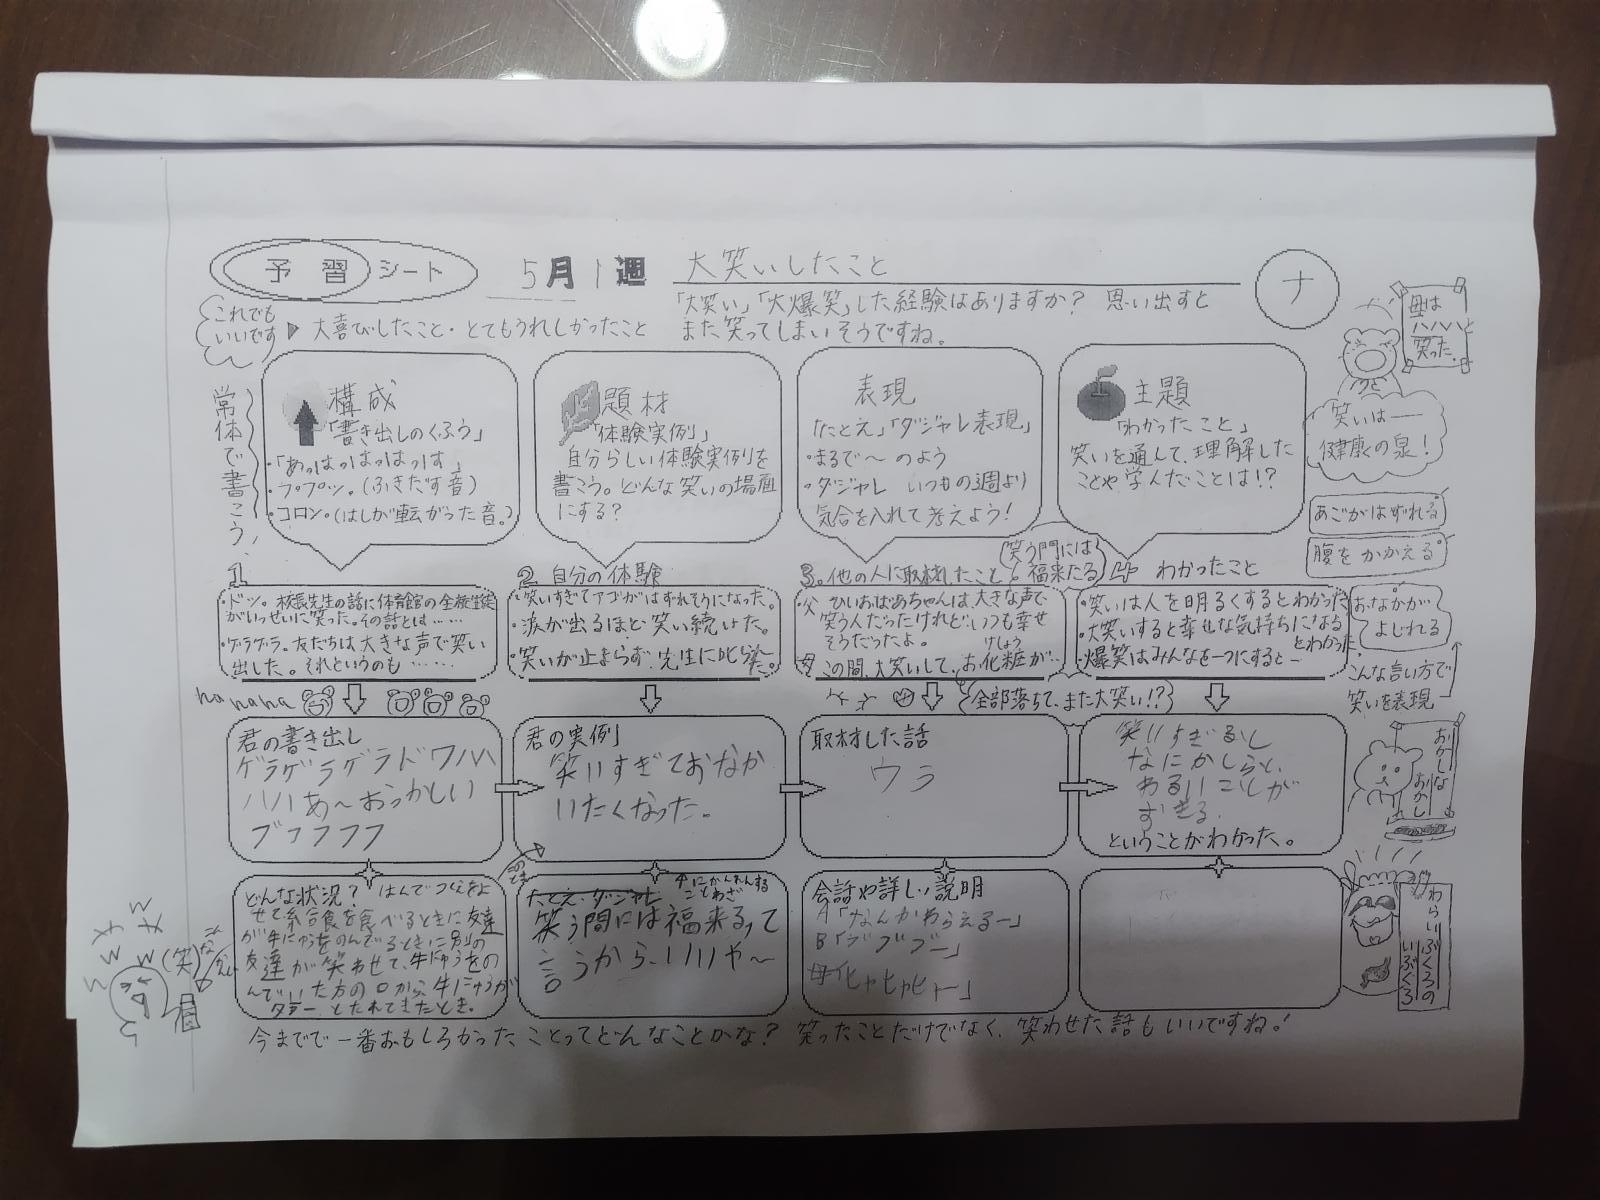 予習シート
5月1週
大笑いしたこと
ナ
これでも
いいです
▶大喜びしたこと・とてもうれしかったこと
「大笑い」「大爆笑」した経験はありますか？ 思い出すと
また笑ってしまいそうですね。
常体で書こう
構成
「書き出しのくふう」
・「あっはっはっはっは」
・プププッ。(ふきだす音)
・コロン。(はしが転がった音。)
題材
「体験実例」
自分らしい体験実例を
書こう。どんな笑いの場面
にする？
表現
「たとえ」「ダジャレ表現」
・まるで〜のよう
・ダジャレ いつもの3週より
気合を入れて考えよう！
主題
「わかったこと」
笑いを通して、理解した
ことや学んだことは！？
母は
ハハハと
笑った。
笑いは――
健康の泉！
あごがはずれる
腹をかかえる
おなかが
よじれる
こんな言い方で
笑いを表現
1
・ドッ。校長先生の話に体育館の全校生徒
がいっせいに笑った。その話とは……
・ゲラゲラ。友だちは大きな声で笑い
出した。それというのも……
2 自分の体験
・笑いすぎてアゴがはずれそうになった。
・涙が出るほど笑い続けた。
・笑いが止まらず、先生に叱られた。
3。他の人に取材したこと
笑う門には
福来たる
・父 ひいおばあちゃんは、大きな声で
笑う人だったけれど、いつも幸せ
そうだったよ。
けしょう
母 この間、大笑いして、お化粧が…
全部落ちて、また大笑い！？
4 わかったこと
・笑いは人を明るくするとわかった
・大笑いすると幸せな気持ちになる
とわかった
・爆笑はみんなを一つにすると―
hahaha
君の書き出し
ゲラゲラゲラドワハハ
ハハハあ〜おっかしい
ブフフフフ
君の実例
笑いすぎておなか
いたくなった。
取材した話
ウラ
笑いすぎるし
なにかしらと、
わるいことが
すぎる
ということがわかった。
どんな状況？ はんでつくえをよ
せて給食を食べるときに友達
が牛にゅうをのんでるときに別の
友達が笑わせて、牛にゅうをの
んでいた方の口から牛にゅうが
タラーとたれてきたとき。
たとえ・ダジャレ
↑にかんれんする
ことわざ
笑う間には福来るって
言うから、いいや〜
会話や詳しい説明
A「なんかわらえるー」
B「ブブブー」
母「ヒャヒャヒャー」
おかしな
おかし
わらいぶくろの
いぶくろ
wwww
(笑)
今までで一番おもしろかったことってどんなことかな？ 笑ったことだけでなく、笑わせた話もいいですね！